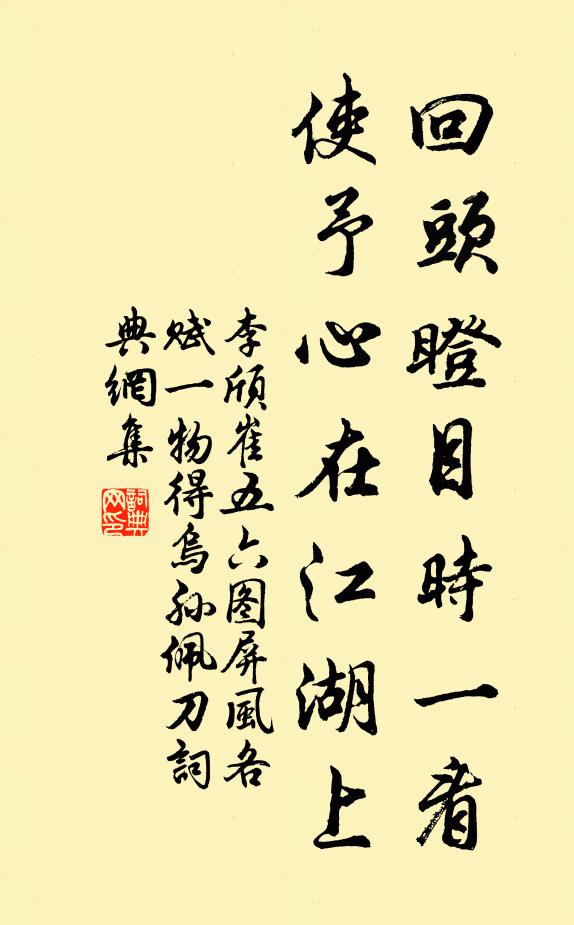 回頭瞪目時一看
使予心在江湖上
李頎崔五六图屏風各
賦一物得烏孫佩刀詞
典網集
詞典
网印